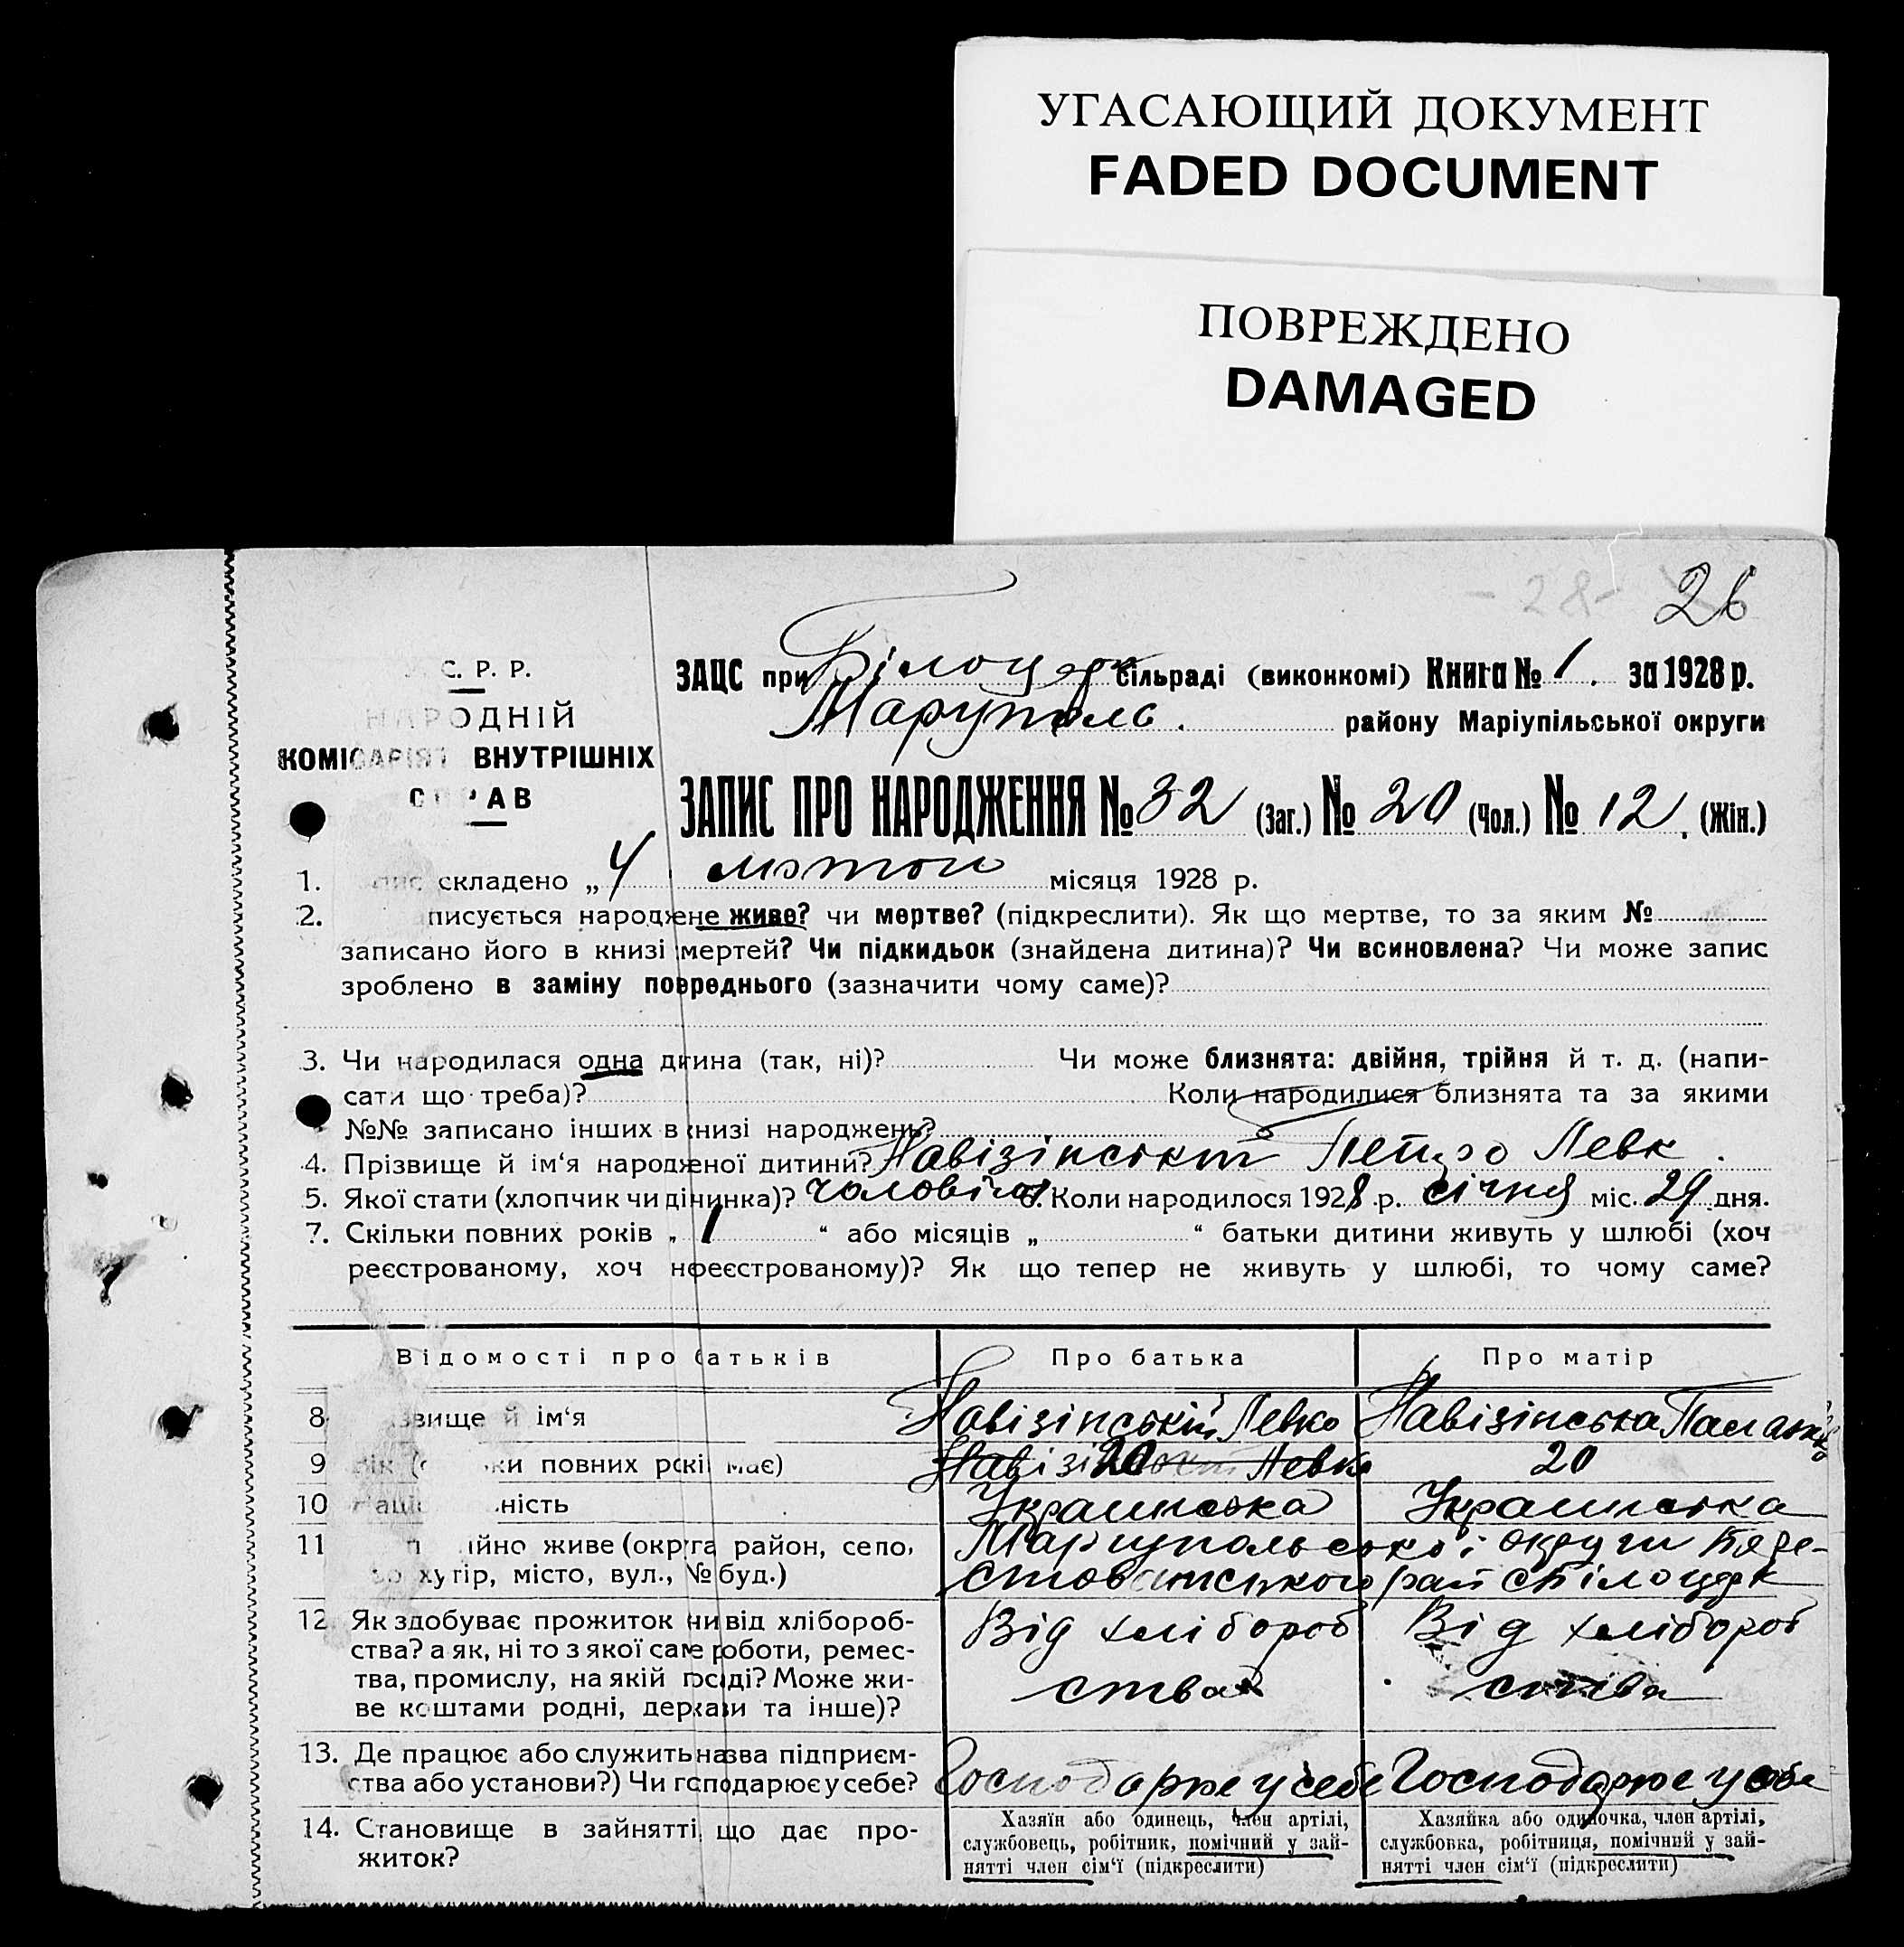 УГАСАЮЩИЙ ДОКУМЕНТ
FADED DOCUMENT
ПОВРЕЖДЕНО
DAMAGED
- 28 - 26
С. Р. Р.
НАРОДНІЙ
КОМІСАРІЯТ ВНУТРІШНІХ
СПРАВ
ЗАЦС при Білоцерк сільраді (виконкомі) Книга № 1. за 1928 р.
Маруполь. району Маріупільської округи
ЗАПИС ПРО НАРОДЖЕННЯ № 32 (Заг.) № 20 (Чол.) № 12. (Жін.)
1. складено „4 місяця 1928 р.
2. писується народжене живе? чи мертве? (підкреслити). Як що мертве, то за яким №
записано його в книзі смертей? Чи підкидьок (знайдена дитина)? Чи всиновлена? Чи може запис
зроблено в заміну повреднього (зазначити чому саме)?
3. Чи народилася одна дитина (так, ні)? Чи може близнята: двійня, трійня й т. д. (напи-
сати що треба)? Коли народилися близнята та за якими
№№ записано інших в книзі народжень?
4. Прізвище й ім‘я народженої дитини? Навізінський Петро Левк.
5. Якої стати (хлопчик чи дівчинка)? чоловічої 6. Коли народилося 1928 р. січня міс. 29 дня.
7. Скільки повних років „ 1 “ або місяців „ “ батьки дитини живуть у шлюбі (хоч
реєстрованому, хоч нереєстрованому)? Як що тепер не живуть у шлюбі, то чому саме?
Відомості про батьків Про батька Про матір
8 звище й ім‘я Навізінський Левко Навізінська Палажка
9 вік ( ки повних років має) Навізінський Левко 20 20
10 Націо ність Украинська Украинська
11 ійно живе (округа, район, село, Мариупольської округи
хутір, місто, вул., № буд.) рай с Білоцерк
12 Як здобуває прожиток чи від хлібороб- Від хлібороб Від хлібороб
ства? а як, ні то з якої саме роботи, ремес-
тва, промислу, на якій посаді? Може жи- ства ства
ве коштами родні, держави та інше)?
13. Де працює або служить назва підприєм-
ства або установи?) Чи господарює у себе? Господарює у себе Господарює у себе
14. Становище в зайнятті, що дає про-
житок?
Хазяїн або одинець, член артілі,
службовець, робітник, помічний у зай-
нятті член сім‘ї (підкреслити)
Хазяйка або одиночка, член артілі,
службовка, робітниця, помічний у зай-
нятті член сім‘ї (підкреслити)